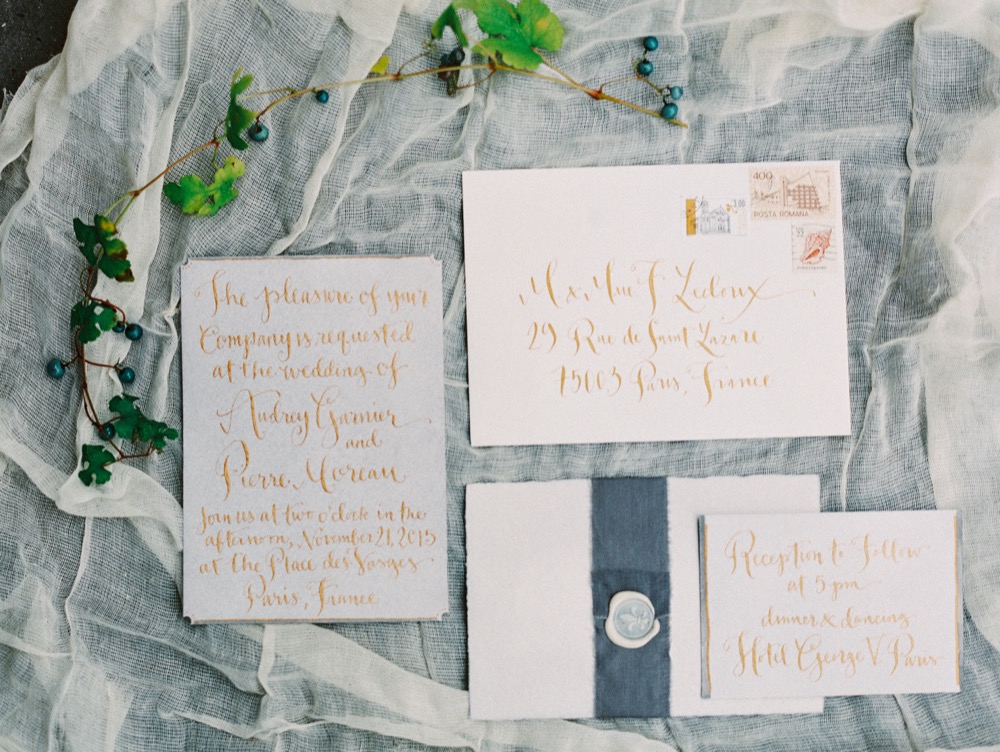 The pleasure of your
Company is requested
at the wedding of
Audrey Garnier
and
Pierre Moreau
Join us at two o'clock in the
afternoon, November 21, 2015
at the Place des Vosges
Paris, France
400
POSTA ROMANA
3.00
M & Mme F Ledoux
29 Rue de Saint Lazare
75003 Paris, France
Reception to Follow
at 5 pm
dinner & dancing
Hotel George V Paris